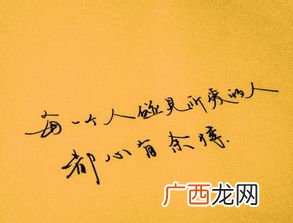 每一个人碰见所爱的人
都心有余悸.
广西龙网